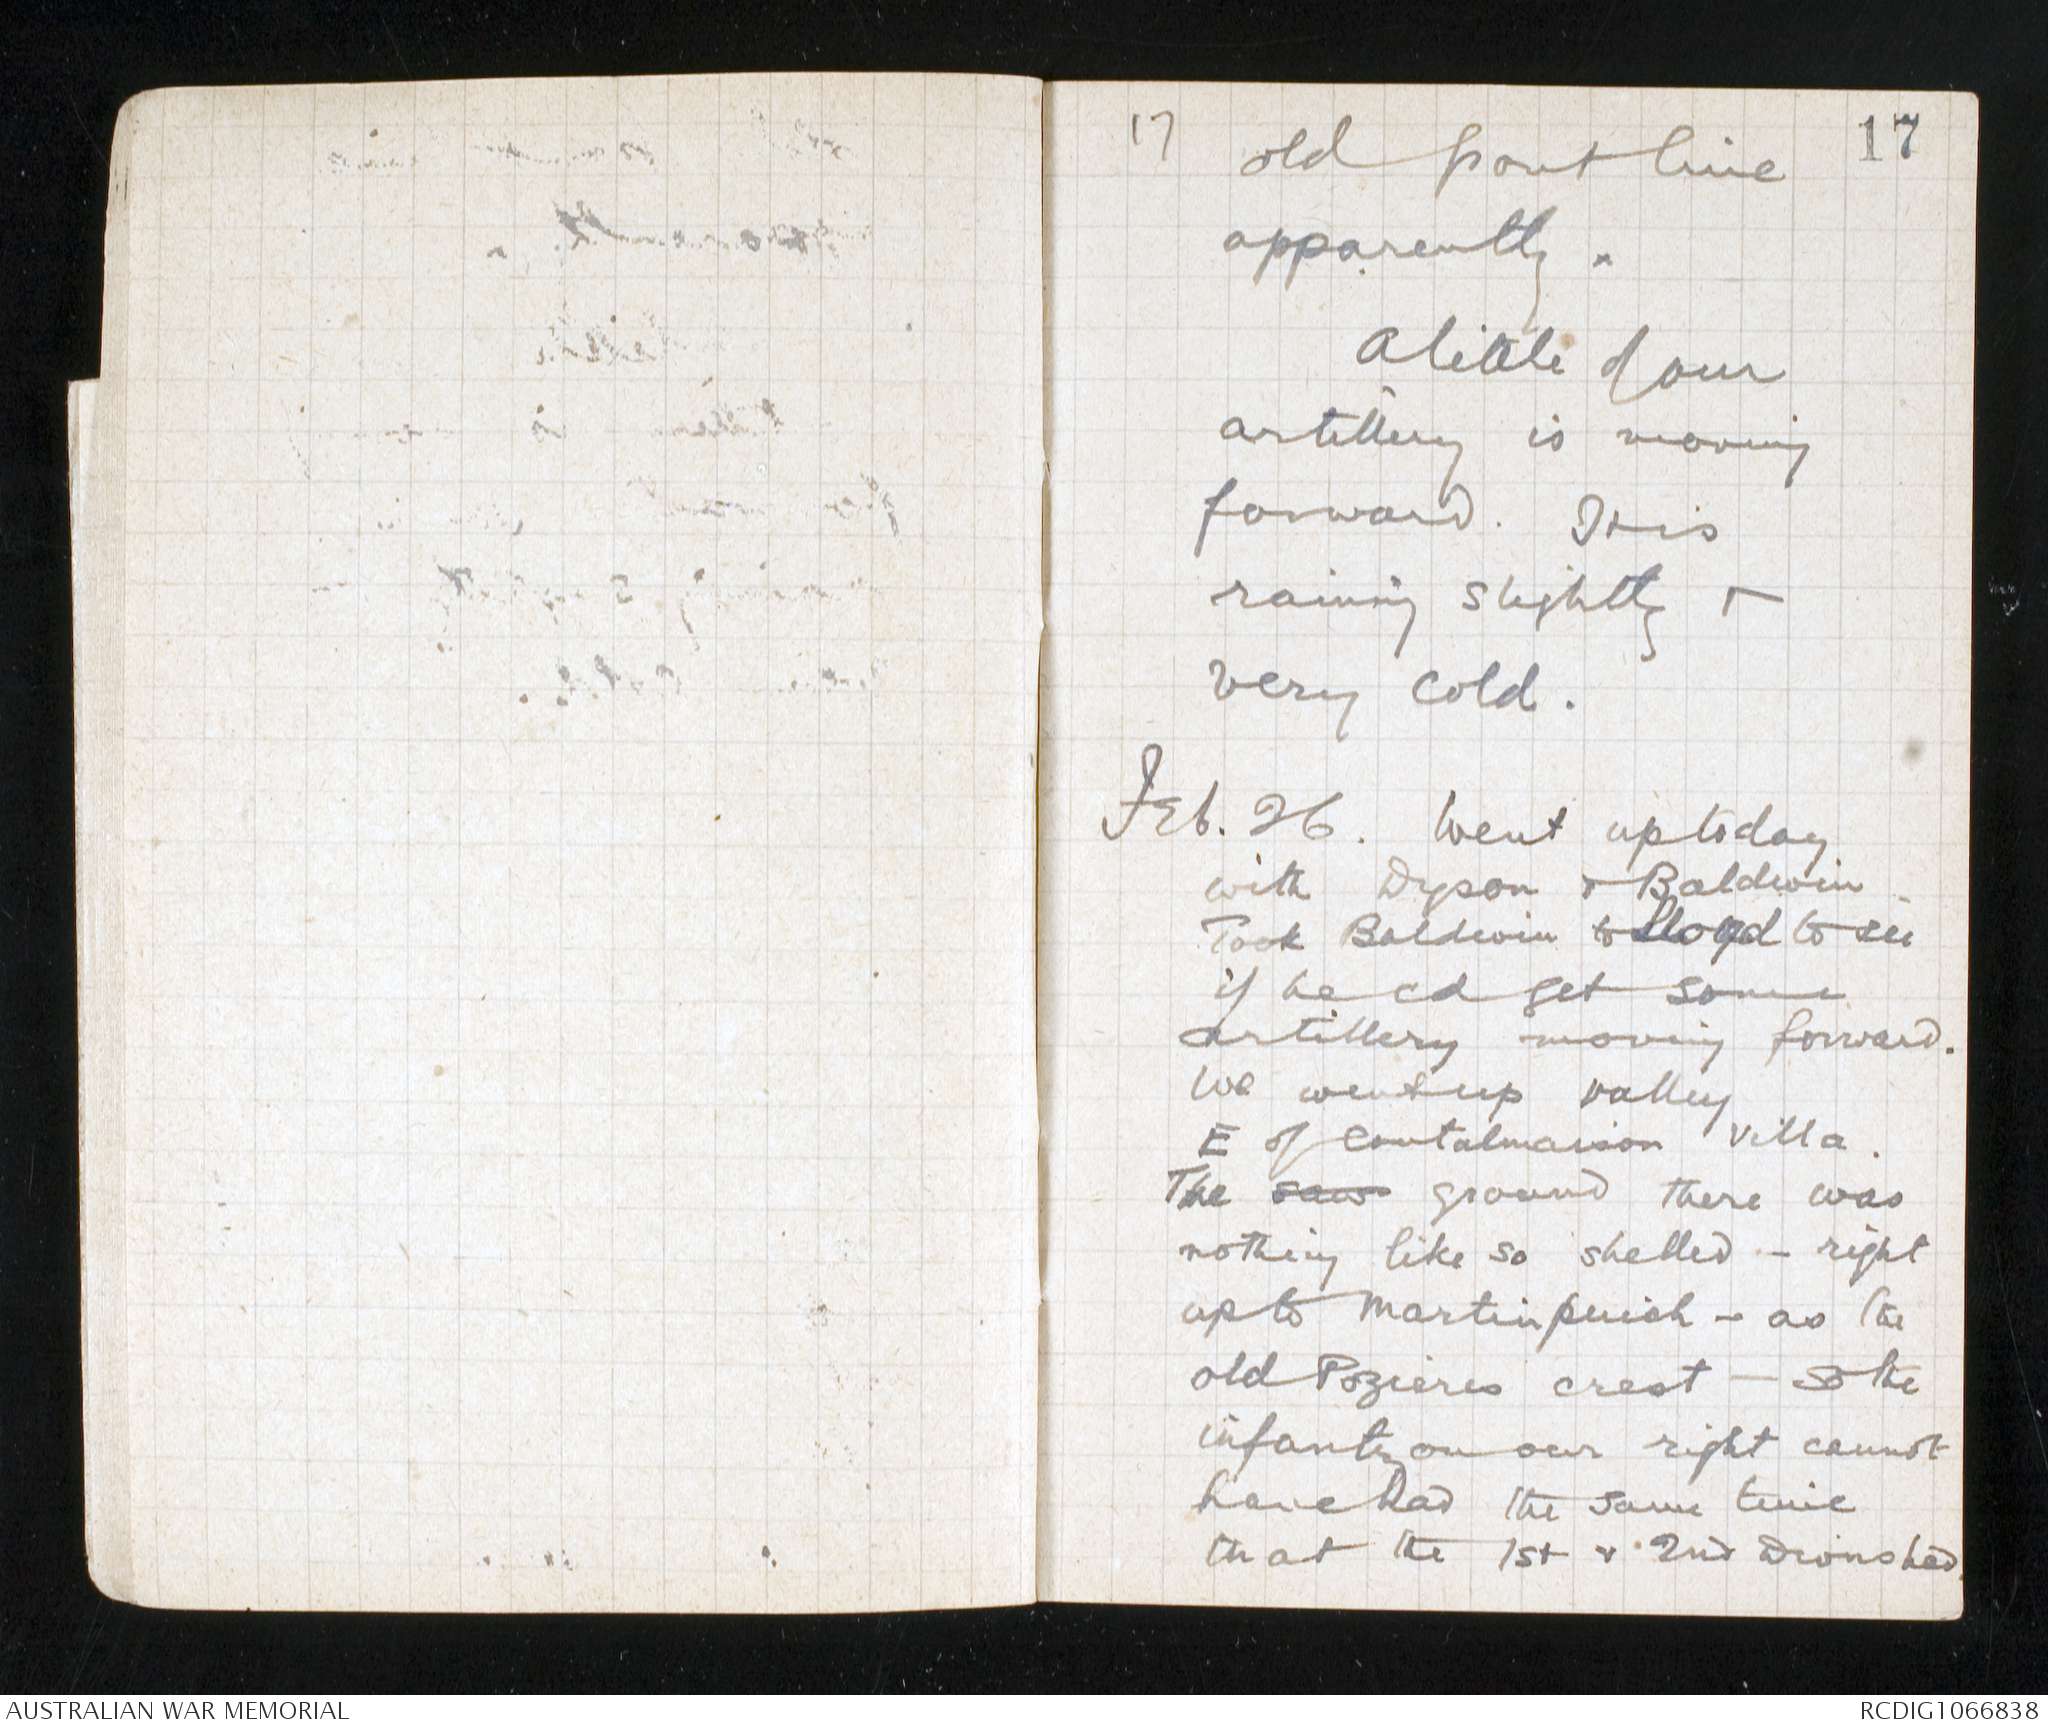 17
17
old front line
apparently.
A little of our
artillery is moving
forward. It is
raining slightly &
very cold.
Feb. 26. Went up today
with Dyson & Baldwin
Took Baldwin to Lloyd to see
if he cd get some
artillery moving forward.
We went up valley
E of Contalmaison Villa.
The saw ground there was
nothing like so shelled - right
up to Martinpuich - as the
old Pozieres crest - So the
infantry on our right cannot
have had the same time
that the 1st & 2nd Divns had.
AUSTRALIAN WAR MEMORIAL
RCDIG1066838